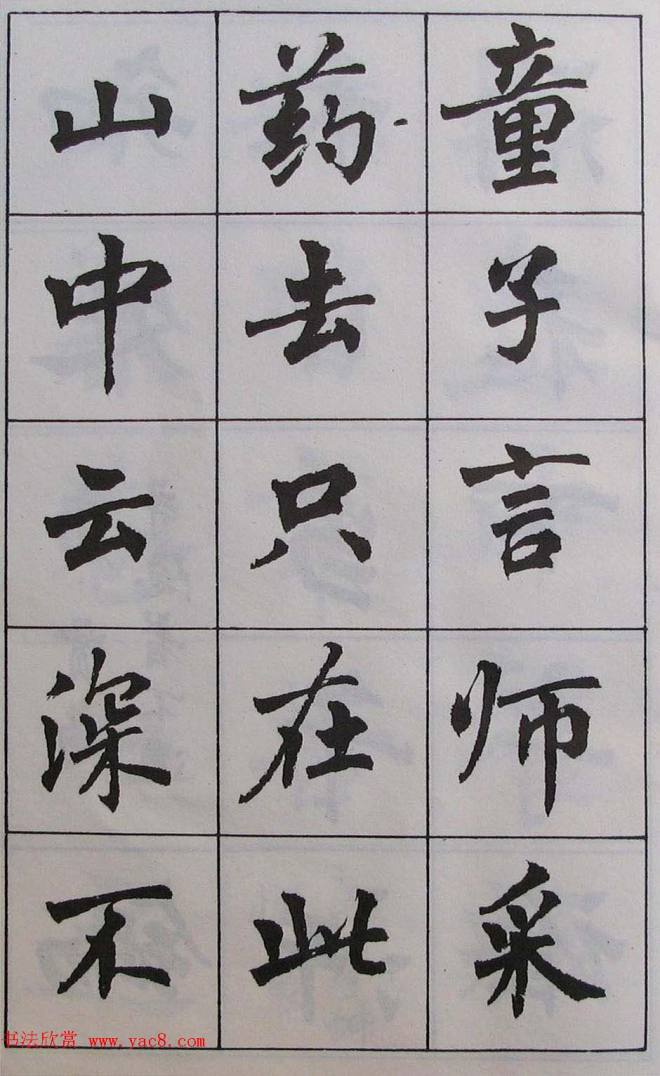 童子言师采
药去只在此
山中云深不
书法欣赏 www.yac8.com